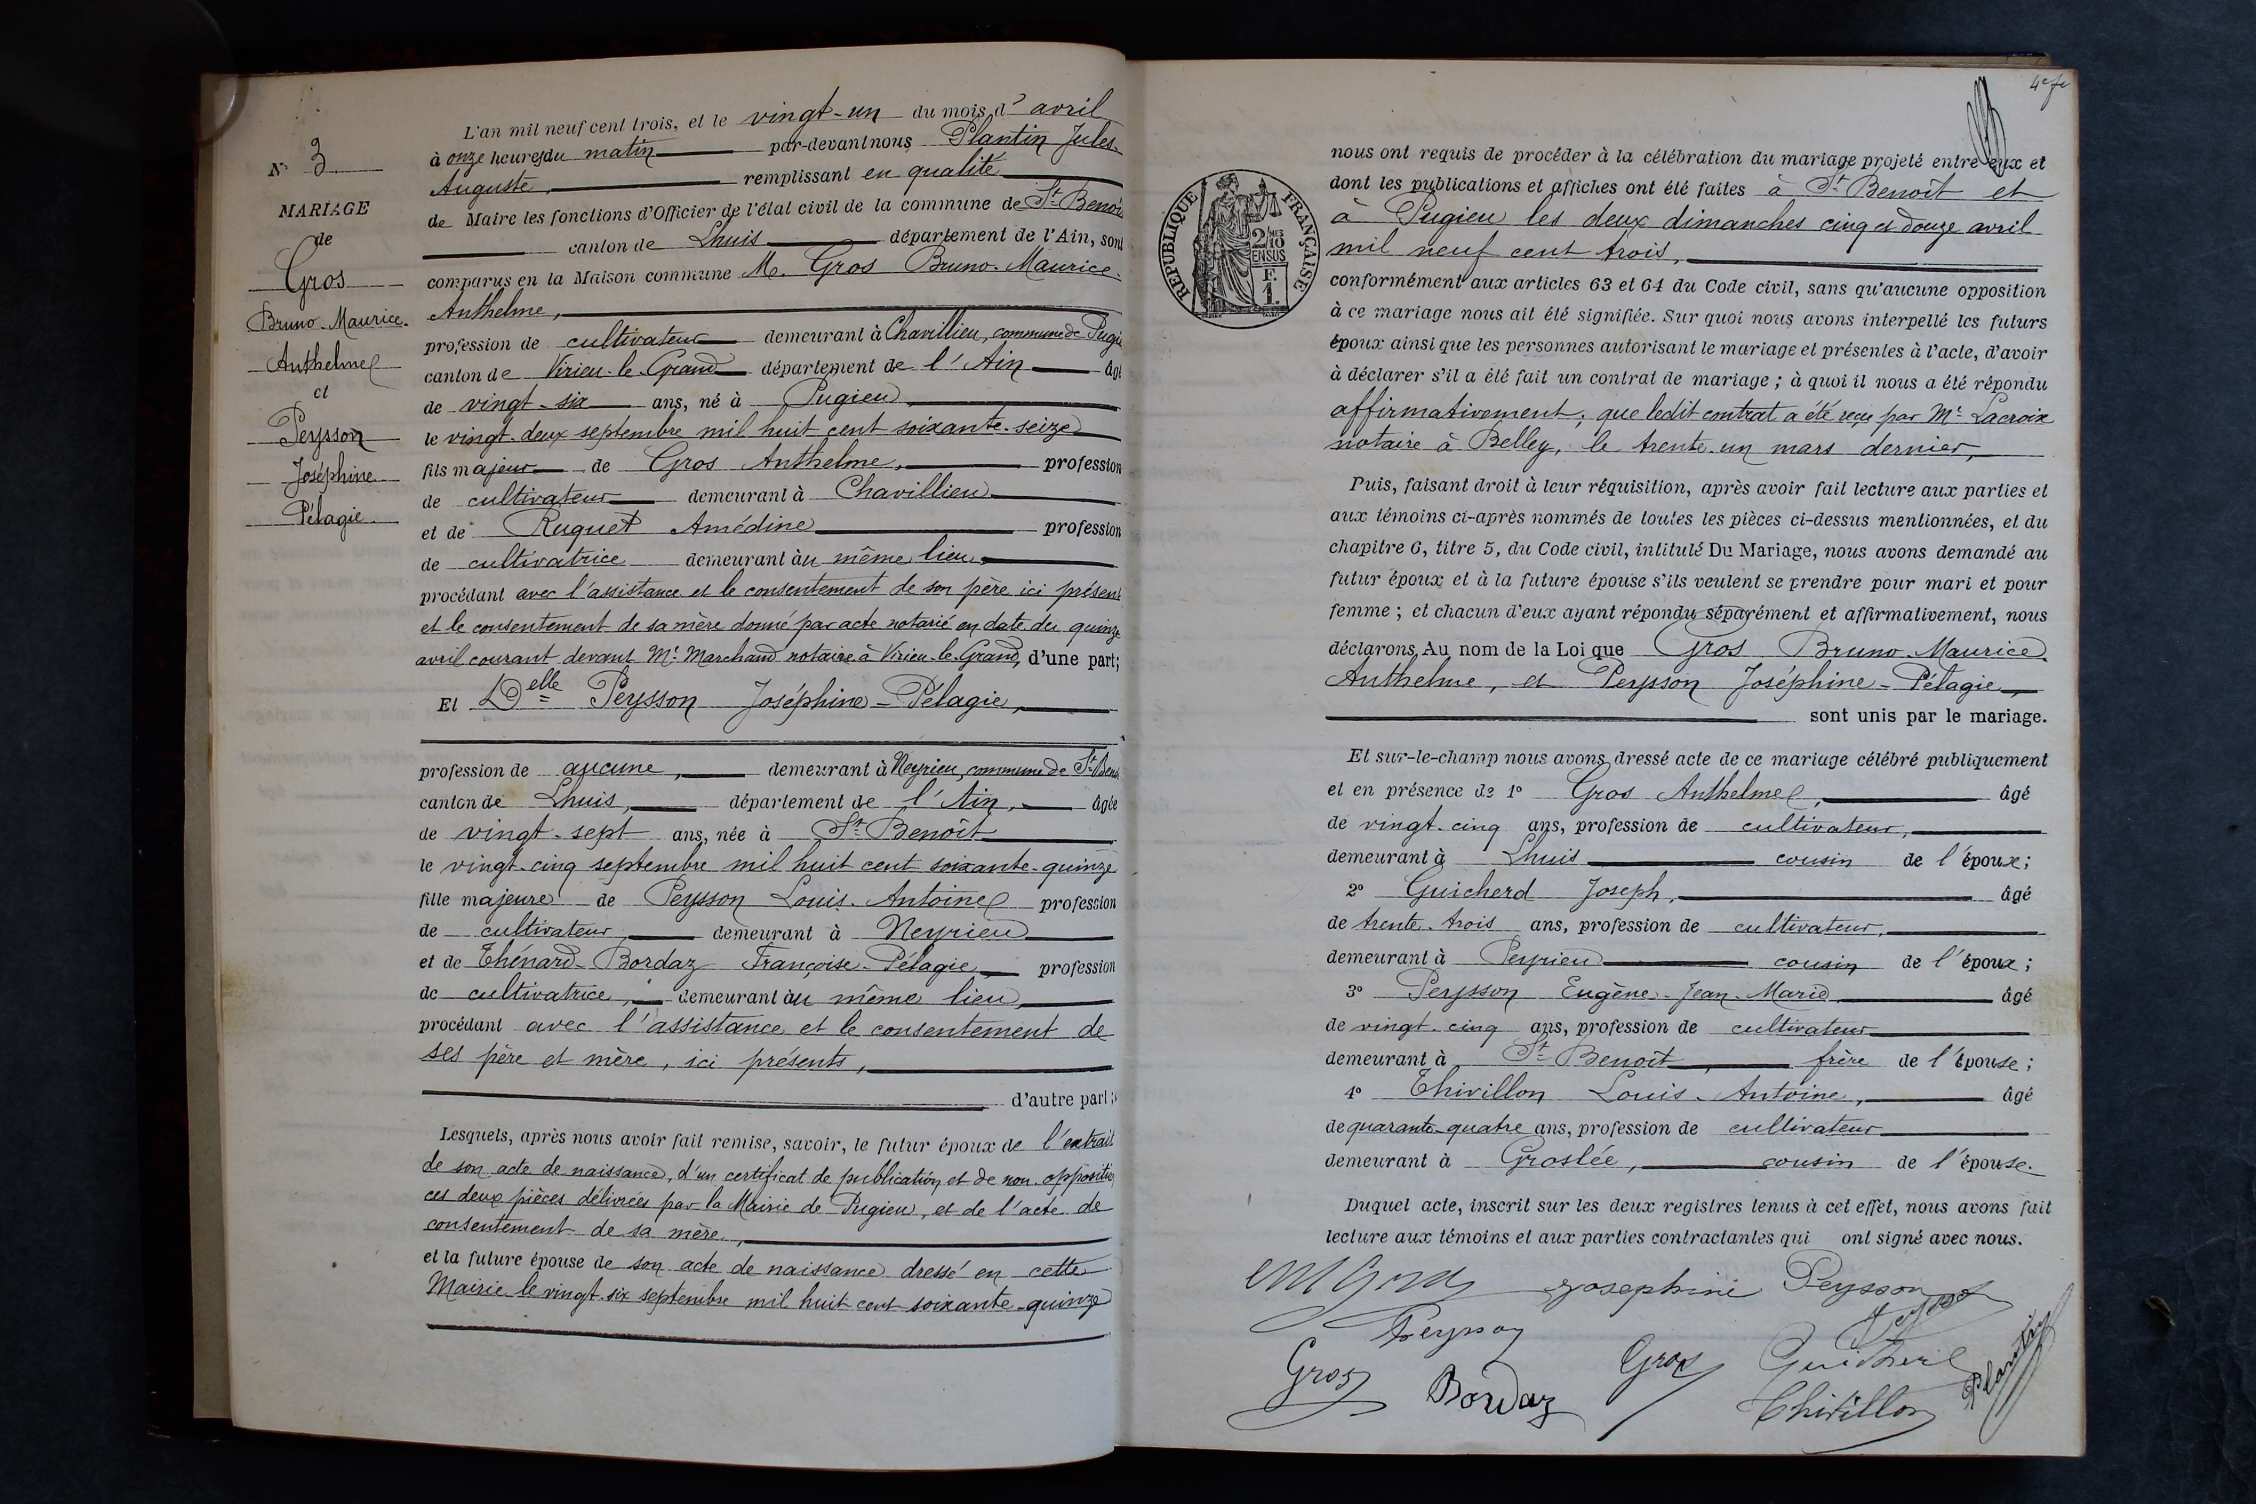 N° 3
MARIAGE
de
Gros
Bruno-Maurice-
Anthelme
et
Peysson
Joséphine
Pélagie
L'an mil neuf cent trois, et le vingt-un du mois d'avril
à onze heures du matin par-devant nous Plantin Jules-
Auguste, remplissant en qualité
de Maire les fonctions d'Officier de l'état civil de la commune de St Benoît
canton de Lhuis département de l'Ain, sont
comparus en la Maison commune M. Gros Bruno-Maurice-
Anthelme,
profession de cultivateur demeurant à Chavillieu, commune de Pugieu
canton de Virieu-le-Grand département de l'Ain âgé
de vingt-six ans, né à Pugieu
le vingt-deux septembre mil huit cent soixante-seize
fils majeur de Gros Anthelme, profession
de cultivateur demeurant à Chavillieu
et de Ruquet Amédine profession
de cultivatrice demeurant au même lieu
procédant avec l'assistance et le consentement de son père ici présent
et le consentement de sa mère donné par acte notarié en date du quinze
avril courant devant Me Marchand notaire à Virieu-le-Grand, d'une part;
Et Delle Peysson Joséphine-Pélagie,
profession de aucune, demeurant à Neyrieu, commune de St Benoît
canton de Lhuis, département de l'Ain, âgée
de vingt-sept ans, née à St Benoît
le vingt-cinq septembre mil huit cent soixante-quinze
fille majeure de Peysson Louis-Antoine profession
de cultivateur, demeurant à Neyrieu
et de Thénard-Bordaz Françoise-Pélagie profession
de cultivatrice, demeurant au même lieu,
procédant avec l'assistance et le consentement de
ses père et mère, ici présents,
d'autre part;
Lesquels, après nous avoir fait remise, savoir, le futur époux de l'extrait
de son acte de naissance, d'un certificat de publication et de non-opposition
ces deux pièces délivrées par la Mairie de Pugieu, et de l'acte de
consentement de sa mère,
et la future épouse de son acte de naissance dressé en cette
Mairie le vingt-six septembre mil huit cent soixante-quinze
4e f
RÉPUBLIQUE FRANÇAISE
2/10
EN SUS
F.
1.
nous ont requis de procéder à la célébration du mariage projeté entre eux et
dont les publications et affiches ont été faites à St Benoît et
à Pugieu les deux dimanches cinq et douze avril
mil neuf cent trois,
conformément aux articles 63 et 64 du Code civil, sans qu'aucune opposition
à ce mariage nous ait été signifiée. Sur quoi nous avons interpellé les futurs
époux ainsi que les personnes autorisant le mariage et présentes à l'acte, d'avoir
à déclarer s'il a été fait un contrat de mariage ; à quoi il nous a été répondu
affirmativement, que ledit contrat a été reçu par Me Lacroix
notaire à Belley, le trente-un mars dernier,
Puis, faisant droit à leur réquisition, après avoir fait lecture aux parties et
aux témoins ci-après nommés de toutes les pièces ci-dessus mentionnées, et du
chapitre 6, titre 5, du Code civil, intitulé Du Mariage, nous avons demandé au
futur époux et à la future épouse s'ils veulent se prendre pour mari et pour
femme ; et chacun d'eux ayant répondu séparément et affirmativement, nous
déclarons Au nom de la Loi que Gros Bruno-Maurice
Anthelme, et Peysson Joséphine-Pélagie,
sont unis par le mariage.
Et sur-le-champ nous avons dressé acte de ce mariage célébré publiquement
et en présence de 1° Gros Anthelme, âgé
de vingt-cinq ans, profession de cultivateur,
demeurant à Lhuis cousin de l'époux;
2° Guicherd Joseph, âgé
de trente-trois ans, profession de cultivateur,
demeurant à Peyrieu cousin de l'époux;
3° Peysson Eugène-Jean-Marie âgé
de vingt-cinq ans, profession de cultivateur
demeurant à St Benoît, frère de l'épouse;
4° Thivillon Louis-Antoine, âgé
de quarante-quatre ans, profession de cultivateur
demeurant à Groslée, cousin de l'épouse.
Duquel acte, inscrit sur les deux registres tenus à cet effet, nous avons fait
lecture aux témoins et aux parties contractantes qui ont signé avec nous.
Josephine Peysson
Peysson
Gros Bordaz Gros Guicherd
Thivillon Plantin